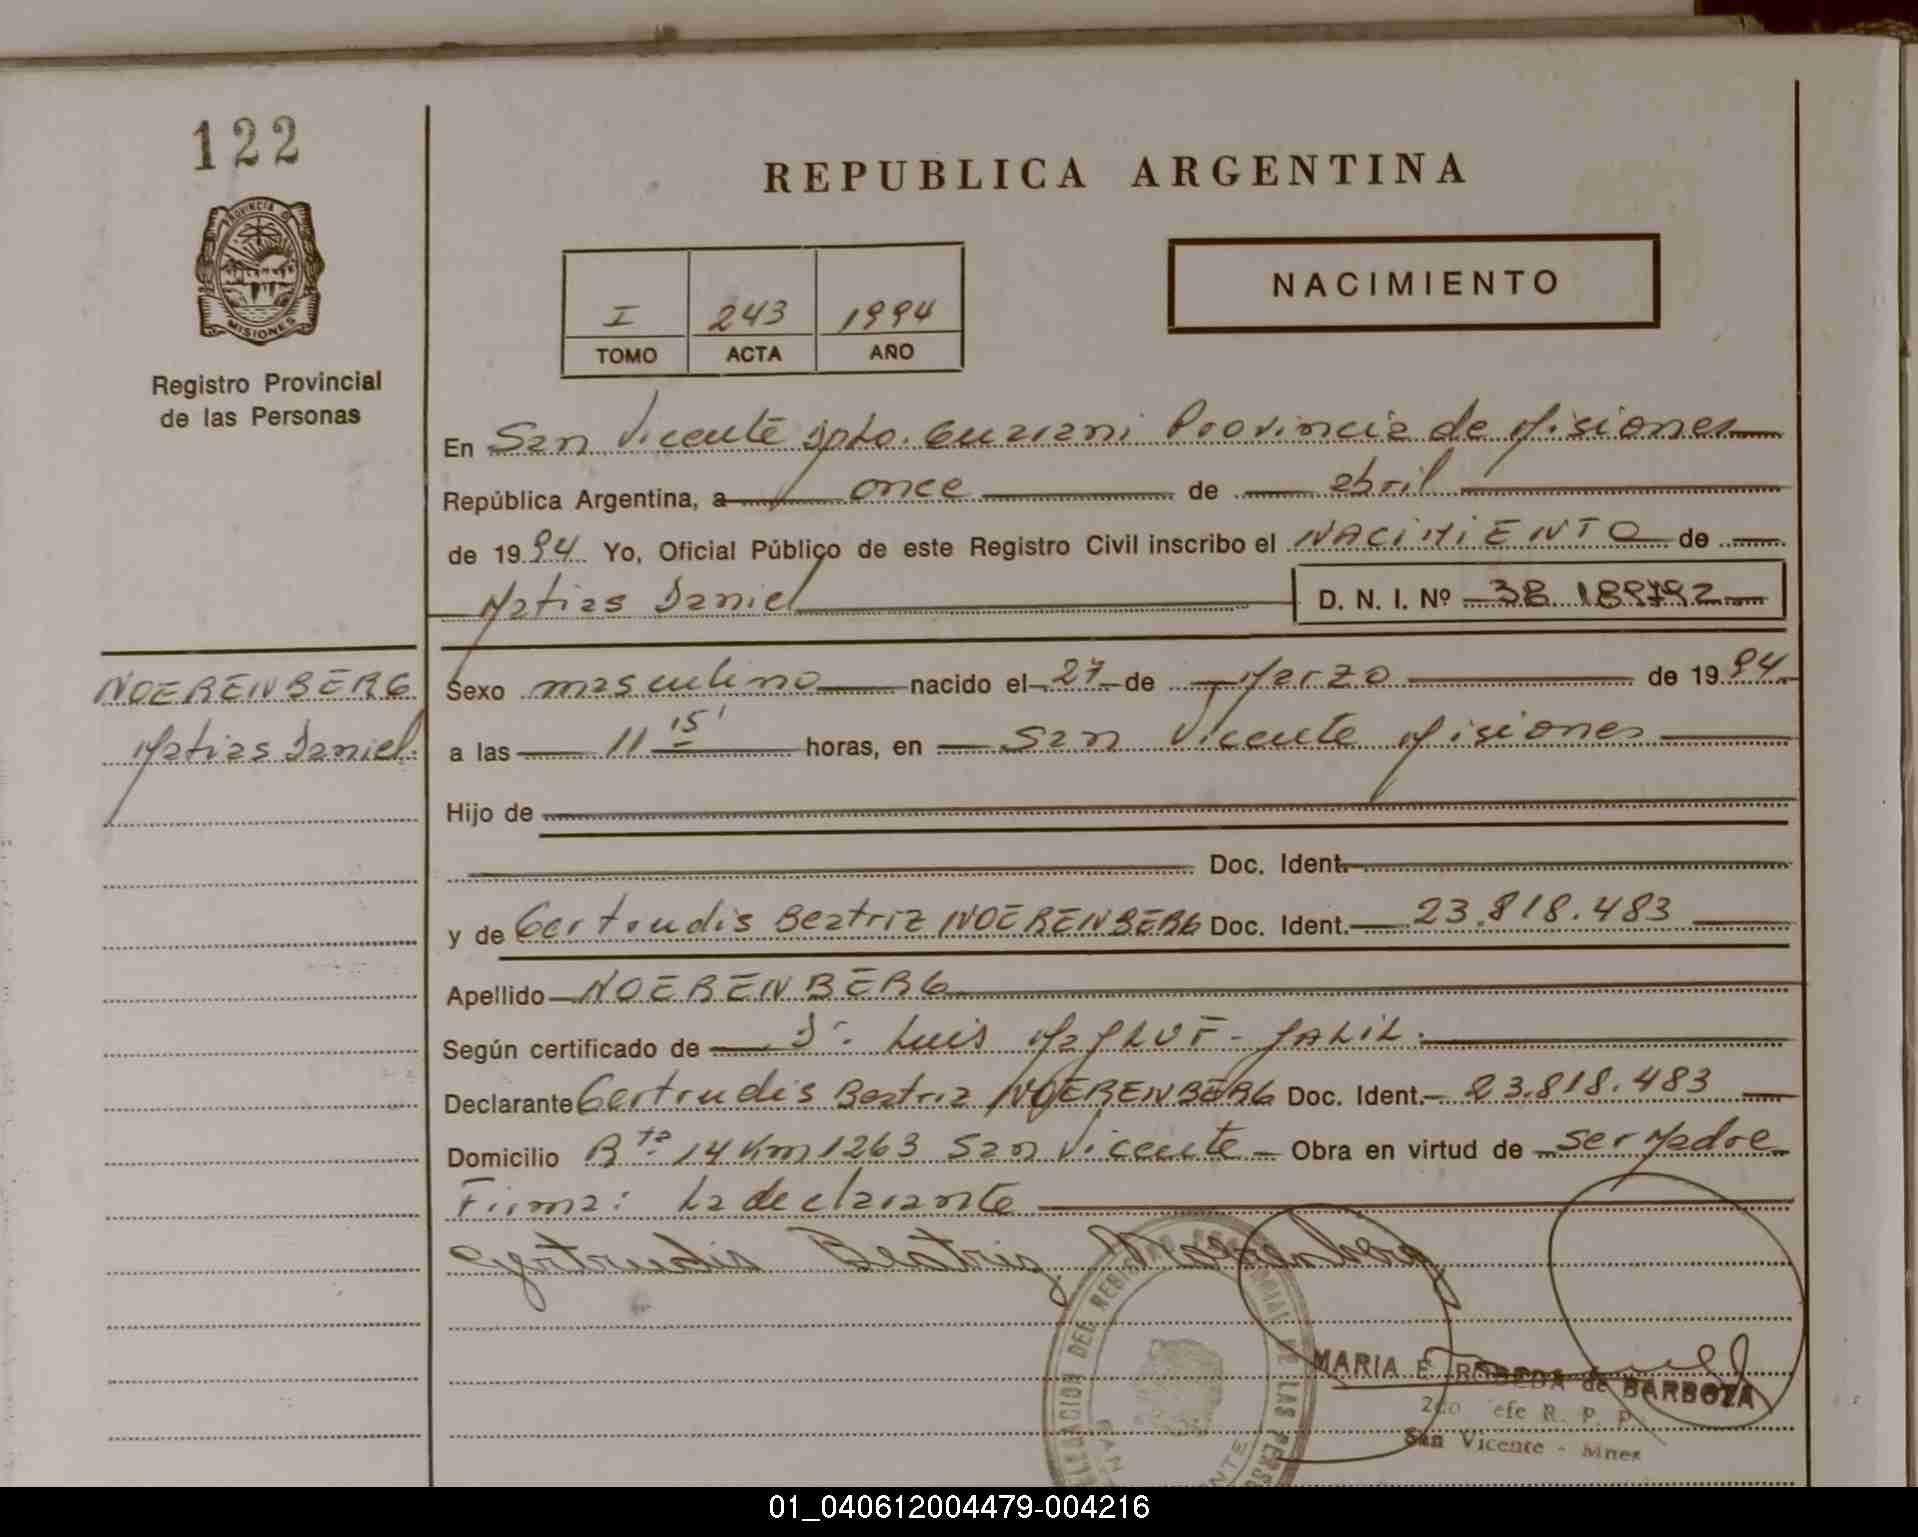 122
REPUBLICA ARGENTINA
PROVINCIA D
MISIONES
Registro Provincial
de las Personas
NACIMIENTO
I 243 1994
TOMO ACTA AÑO
En San Vicente Dpto. Guarani Provincia de Misiones
República Argentina, a once de abril
de 1994 Yo, Oficial Público de este Registro Civil inscribo el NACIMIENTO de
Matias Daniel D. N. I. Nº 38.189792
NOERENBERG
Matias Daniel.
Sexo masculino nacido el 27 de Marzo de 1994
a las 11 15' horas, en San Vicente Misiones
Hijo de
Doc. Ident.
y de Gertrudis Beatriz NOERENBERG Doc. Ident. 23.818.483
Apellido NOERENBERG
Según certificado de Dr. Luis MaJLUF - JALIL.
Declarante Gertrudis Beatriz NOERENBERG Doc. Ident. 23.818.483
Domicilio Rta. 14 Km 1263 San Vicente Obra en virtud de ser Madre
Firma: La declarante
Gertrudis Beatriz Noerenberg
DEL REGISTRO PROVINCIAL DE LAS PERSO
SAN
NTE
MARIA E. ROBEDA de BARBOZA
2do efe R. P. P.
San Vicente - Mnes
01_040612004479-004216